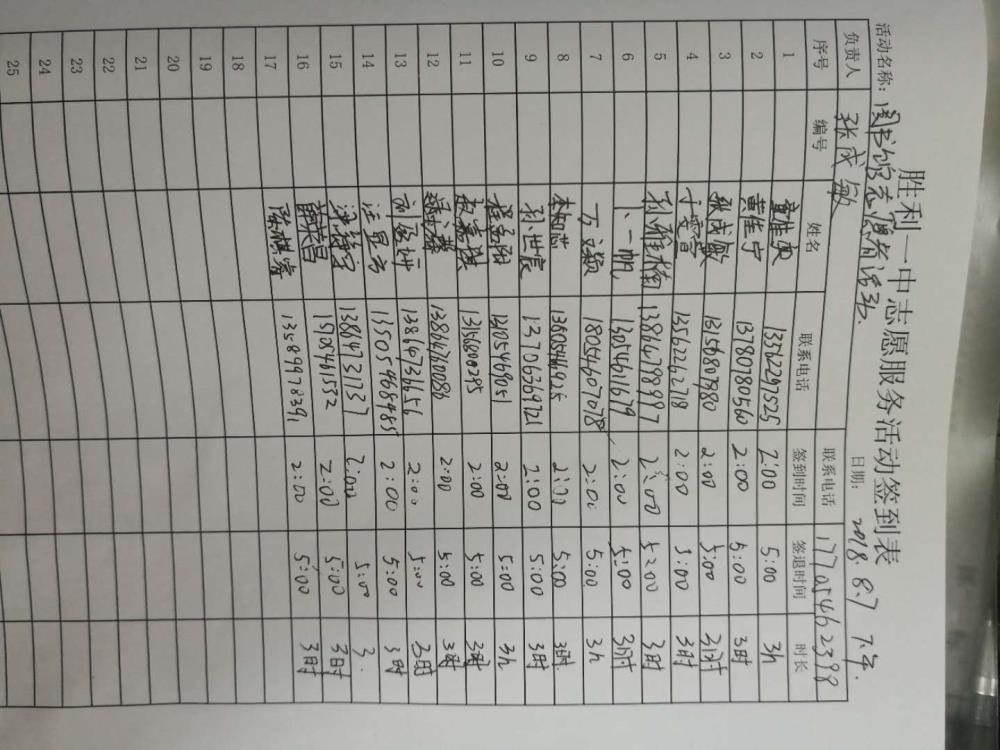 胜利一中志愿服务活动签到表
活动名称：图书馆志愿者活动 日期：2018.8.7 下午
负责人 张成敏 联系电话 17705462398
序号 编号 姓名 联系电话 签到时间 签退时间 时长
1 13562297525 2:00 5:00 3h
2 黄佳宁 13780780560 2:00 5:00 3时
3 张成敏 13156807980 2:00 5:00 3小时
4 13562262718 2:00 5:00 3时
5 13864798987 2:00 5:00 3时
6 卜一帆 13054611679 2:00 5:00 3小时
7 万颖 18054607078 2:00 5:00 3h
8 李知芯 2:00 5:00 3时
9 孙世宸 13706369721 2:00 5:00 3时
10 程勐翔 2:00 5:00 3h
11 2:00 5:00 3时
12 13864760088 2:00 5:00 3时
13 13864736656 2:00 5:00 3时
14 汪显考 15054668485 2:00 5:00 3时
15 13864731137 2:00 5:00 3.
16 15005461552 2:00 5:00 3时
17 13589997839 2:00 5:00 3时
18
19
20
21
22
23
24
25